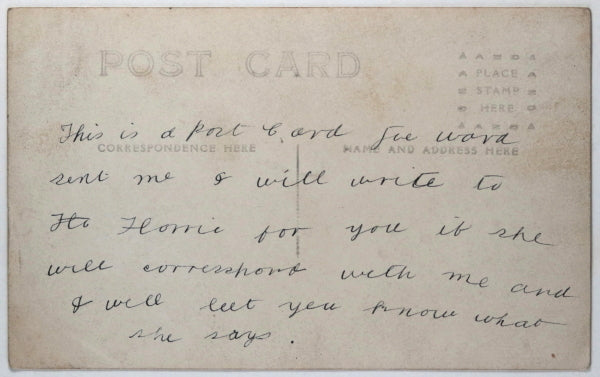 POST CARD
PLACE
STAMP
HERE
This is a Post Card Joe Ward
CORRESPONDENCE HERE
NAME AND ADDRESS HERE
sent me I will write to
Flo Florrie for you if she
will correspond with me and
I will let you know what
she says.